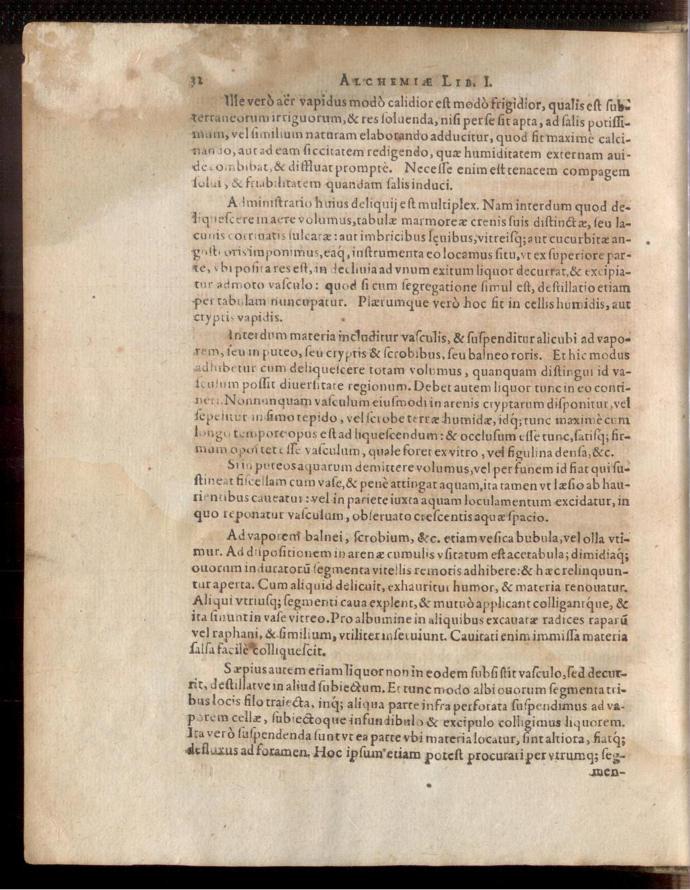 32 ALCHEMIÆ LIB. I.
Ille verò aër vapidus modò calidior est modò frigidior, qualis est sub-
terraneorum irriguorum, & res soluenda, nisi per se sit apta, ad salis potissi-
mum, vel similium naturam elaborando adducitur, quod fit maximè calci-
nando, aut ad eam siccitatem redigendo, quæ humiditatem externam aui-
de combibat, & diffluat promptè. Necesse enim est tenacem compagem
solui, & friabilitatem quandam salis induci.
Administratio huius deliquij est multiplex. Nam interdum quod de-
liquescere in aere volumus, tabulæ marmoreæ crenis suis distinctæ, seu la-
cunis corriuatis sulcatæ: aut imbricibus ignibus, vitreisq; aut cucurbitæ an-
gusti oris imponimus, eaq́, instrumenta eo locamus situ, vt ex superiore par-
te, vbi posita res est, in decliuia ad vnum exitum liquor decurrat, & excipia-
tur admoto vasculo: quod si cum segregatione simul est, destillatio etiam
per tabulam nuncupatur. Plærumque verò hoc fit in cellis humidis, aut
cryptis vapidis.
Interdum materia includitur vasculis, & suspenditur alicubi ad vapo-
rem, seu in puteo, seu cryptis & scrobibus, seu balneo roris. Et hic modus
adhibetur cum deliquescere totam volumus, quanquam distingui id va-
sculum possit diuersitate regionum. Debet autem liquor tunc in eo conti-
neri. Nonnunquam vasculum eiusmodi in arenis cryptarum disponitur, vel
sepelitur in fimo tepido, vel scrobe terræ humidæ, idq́; tunc maximè cum
longo tempore opus est ad liquescendum: & occlusum esse tunc, satisq; fir-
mum oportet esse vasculum, quale foret ex vitro, vel figulina densa, &c.
Si in puteos aquarum demittere volumus, vel per funem id fiat qui su-
stineat fiscellam cum vase, & penè attingat aquam, ita tamen vt læsio ab hau-
rientibus caueatur: vel in pariete iuxta aquam loculamentum excidatur, in
quo reponatur vasculum, obseruato crescentis aquæ spacio.
Ad vaporem balnei, scrobium, &c. etiam vesica bubula, vel olla vti-
mur. Ad dispositionem in arenæ cumulis vsitatum est acetabula; dimidiaq́;
ouorum induratorũ segmenta vitellis remotis adhibere: & hæc relinquun-
tur aperta. Cum aliquid delicuit, exhauritur humor, & materia renouatur.
Aliqui vtriusq; segmenti caua explent, & mutuò applicant colligantque, &
ita sinunt in vase vitreo. Pro albumine in aliquibus excauatæ radices raparũ
vel raphani, & similium, vtiliter inseruiunt. Cauitati enim immissa materia
salsa facilè colliquescit.
Sæpius autem etiam liquor non in eodem subsistit vasculo, sed decur-
rit, destillatve in aliud subiectum. Et tunc modo albi ouorum segmenta tri-
bus locis filo traiecta, inq́; aliqua parte infra perforata suspendimus ad va-
porem cellæ, subiectoque infundibulo & excipulo colligimus liquorem.
Ita verò suspendenda sunt vt ea parte vbi materia locatur, sint altiora, fiatq́;
defluxus ad foramen. Hoc ipsum etiam potest procurari per vtrumq; seg-
men-